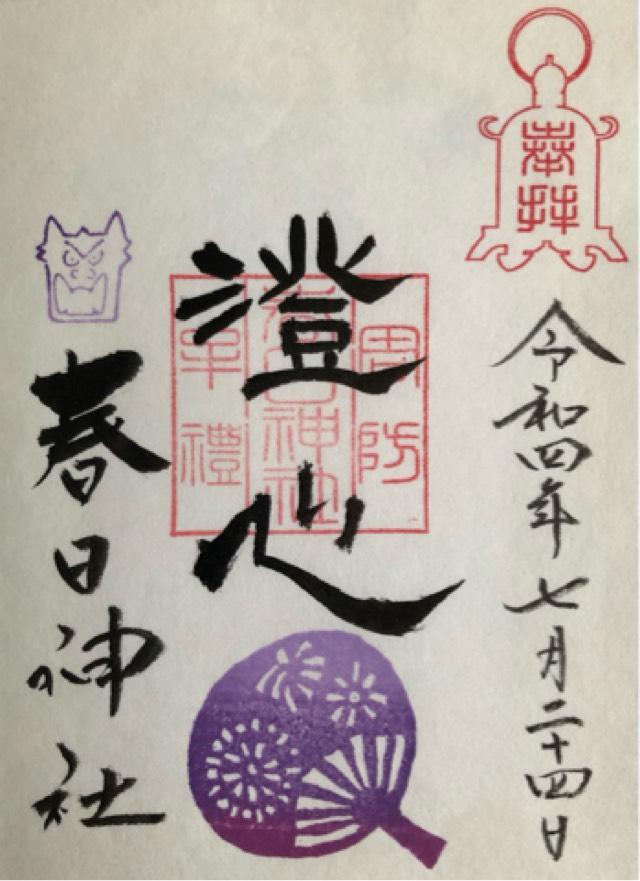 奉拝
令和四年七月二十四日
周防
春日神社
牟禮
澄心
春日神社